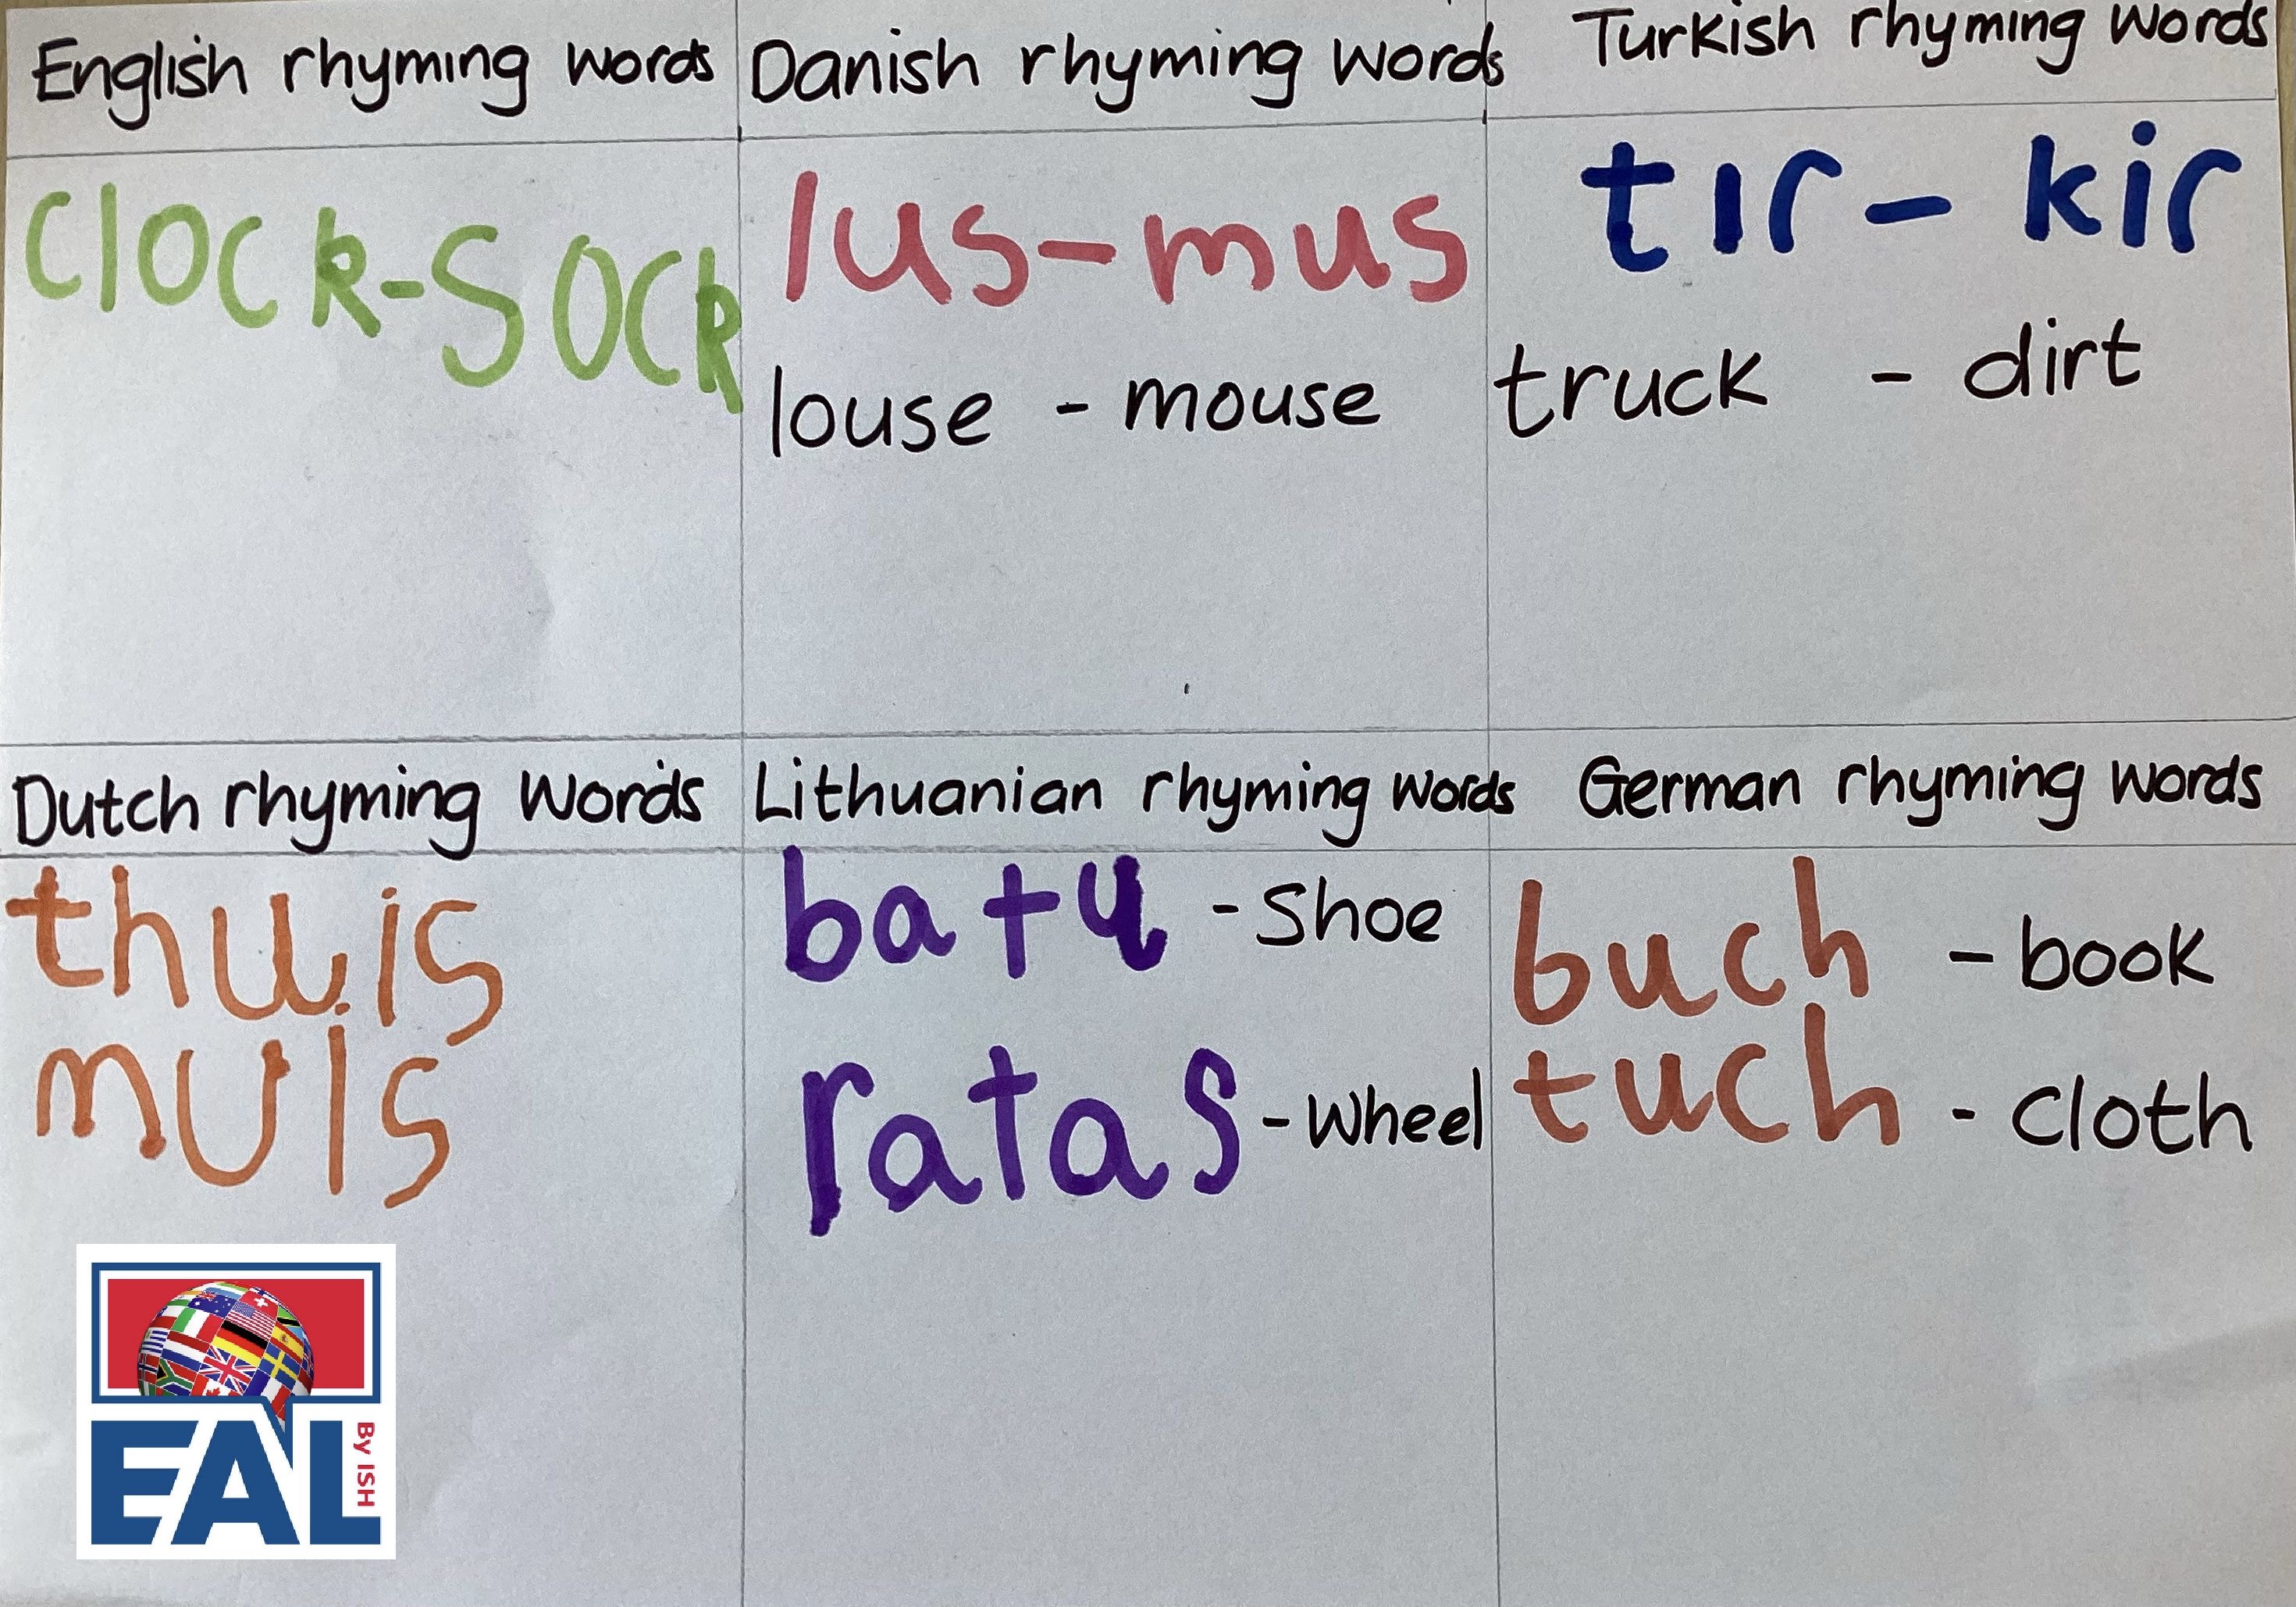 English rhyming words
clock-sock
Danish rhyming words
lus-mus
louse - mouse
Turkish rhyming words
tır - kir
truck - dirt
Dutch rhyming words
thuis
muis
Lithuanian rhyming words
batu - shoe
ratas - wheel
German rhyming words
buch - book
tuch - cloth
EAL
By ISH